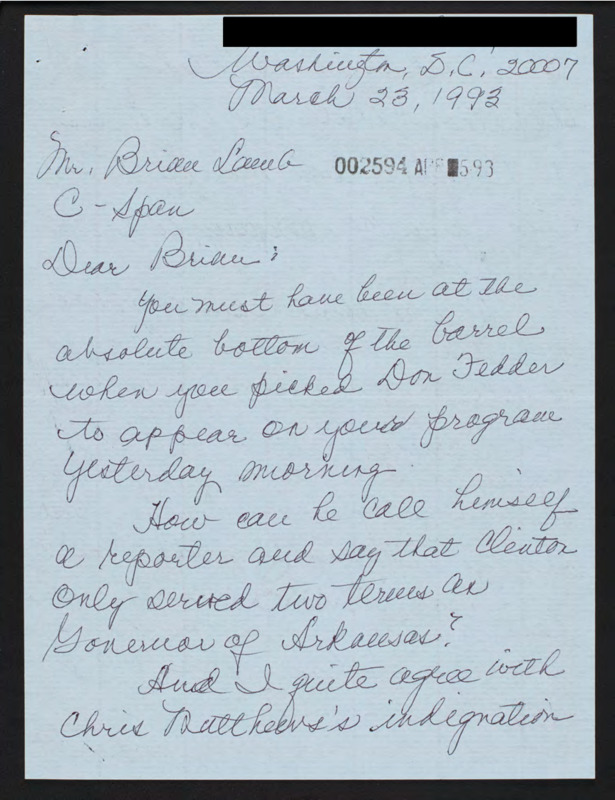 Washington, D.C. 20007
March 23, 1993
Mr. Brian Lamb
002594 APR 593
C-Span
Dear Brian:
You must have been at the
absolute bottom of the barrel
when you picked Don Fedder
to appear on your program
yesterday morning
How can he call himself
a reporter and say that Clinton
only served two terms as
Governor of Arkansas?
And I quite agree with
Chris Matthews's indignation